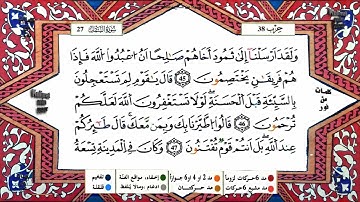 حزب 38
سورة النمل
27
وَلَقَدْ أَرْسَلْنَا إِلَىٰ ثَمُودَ أَخَاهُمْ صَالِحًا أَنِ اعْبُدُوا اللَّهَ فَإِذَا
هُمْ فَرِيقَانِ يَخْتَصِمُونَ 45 قَالَ يَا قَوْمِ لِمَ تَسْتَعْجِلُونَ
بِالسَّيِّئَةِ قَبْلَ الْحَسَنَةِ لَوْلَا تَسْتَغْفِرُونَ اللَّهَ لَعَلَّكُمْ
تُرْحَمُونَ 46 قَالُوا اطَّيَّرْنَا بِكَ وَبِمَن مَّعَكَ قَالَ طَائِرُكُمْ
عِندَ اللَّهِ بَلْ أَنتُمْ قَوْمٌ تُفْتَنُونَ 47 وَكَانَ فِي الْمَدِينَةِ تِسْعَةُ
كلمات
من
نور
مد 6 حركات لزوماً مد 2 أو 4 أو 6 جوازاً إخفاء، ومواقع الغنة تفخيم
مد مشبع 6 حركات مد حركتان إدغام، وما لا يلفظ قلقلة